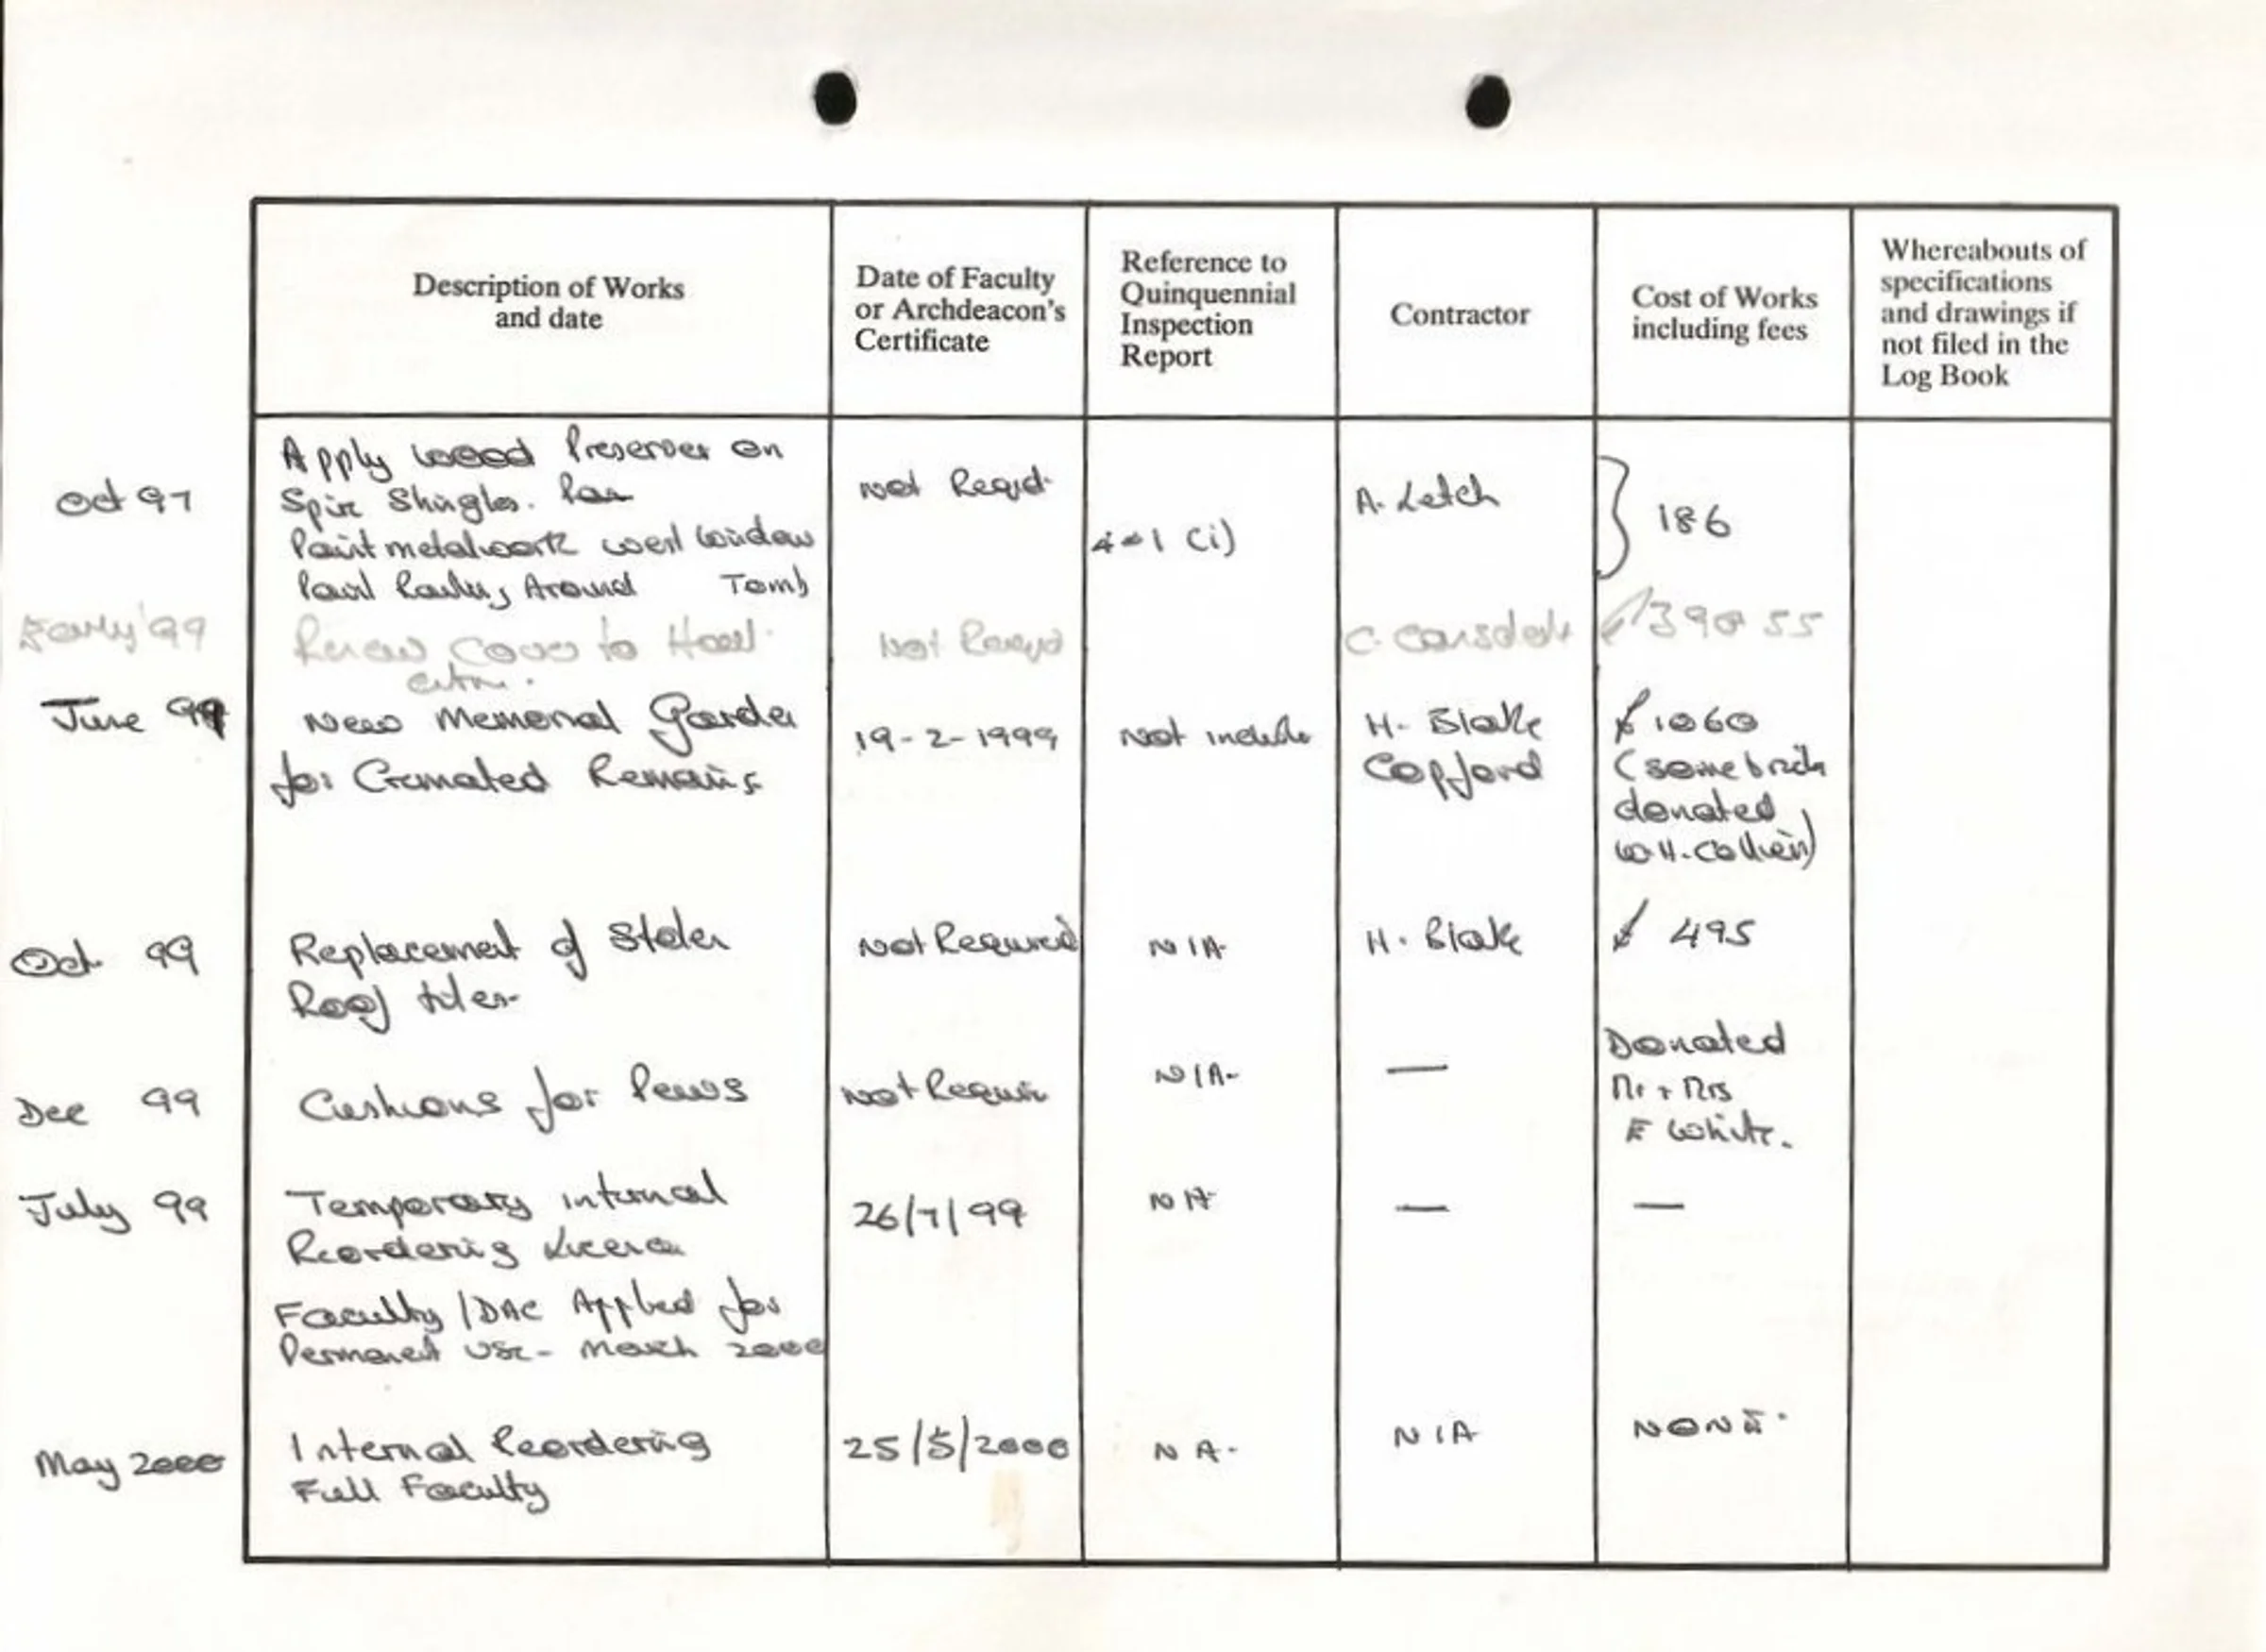 Description of Works
and date
Date of Faculty
or Archdeacon's
Certificate
Reference to
Quinquennial
Inspection
Report
Contractor
Cost of Works
including fees
Whereabouts of
specifications
and drawings if
not filed in the
Log Book
Oct 97
Apply wood Preserver on
Spire Shingles.
Paint metalwork west window
Paint Railing Around Tomb
Not Reqd.
4.1 (i)
A. Letch
186
Early '99
Renew Cover to
Not Reqd
C.
£390 55
June 99
New Memorial Garden
for Cremated Remains
19-2-1999
Not include
H. Blake
Copford
£1060
(some bricks
donated
W.H. Collier)
Oct 99
Replacement of Stolen
Roof tiles
Not Required
N/A
H. Blake
£ 495
Dec 99
Cushions for Pews
Not Require
N/A-
—
Donated
Mr + Mrs
E White.
July 99
Temporary internal
Reordering Licence
Faculty / DAC Applied for
Permanent use - March 2000
26/7/99
N A
—
—
May 2000
Internal Reordering
Full Faculty
25/5/2000
N A-
N/A
NONE.